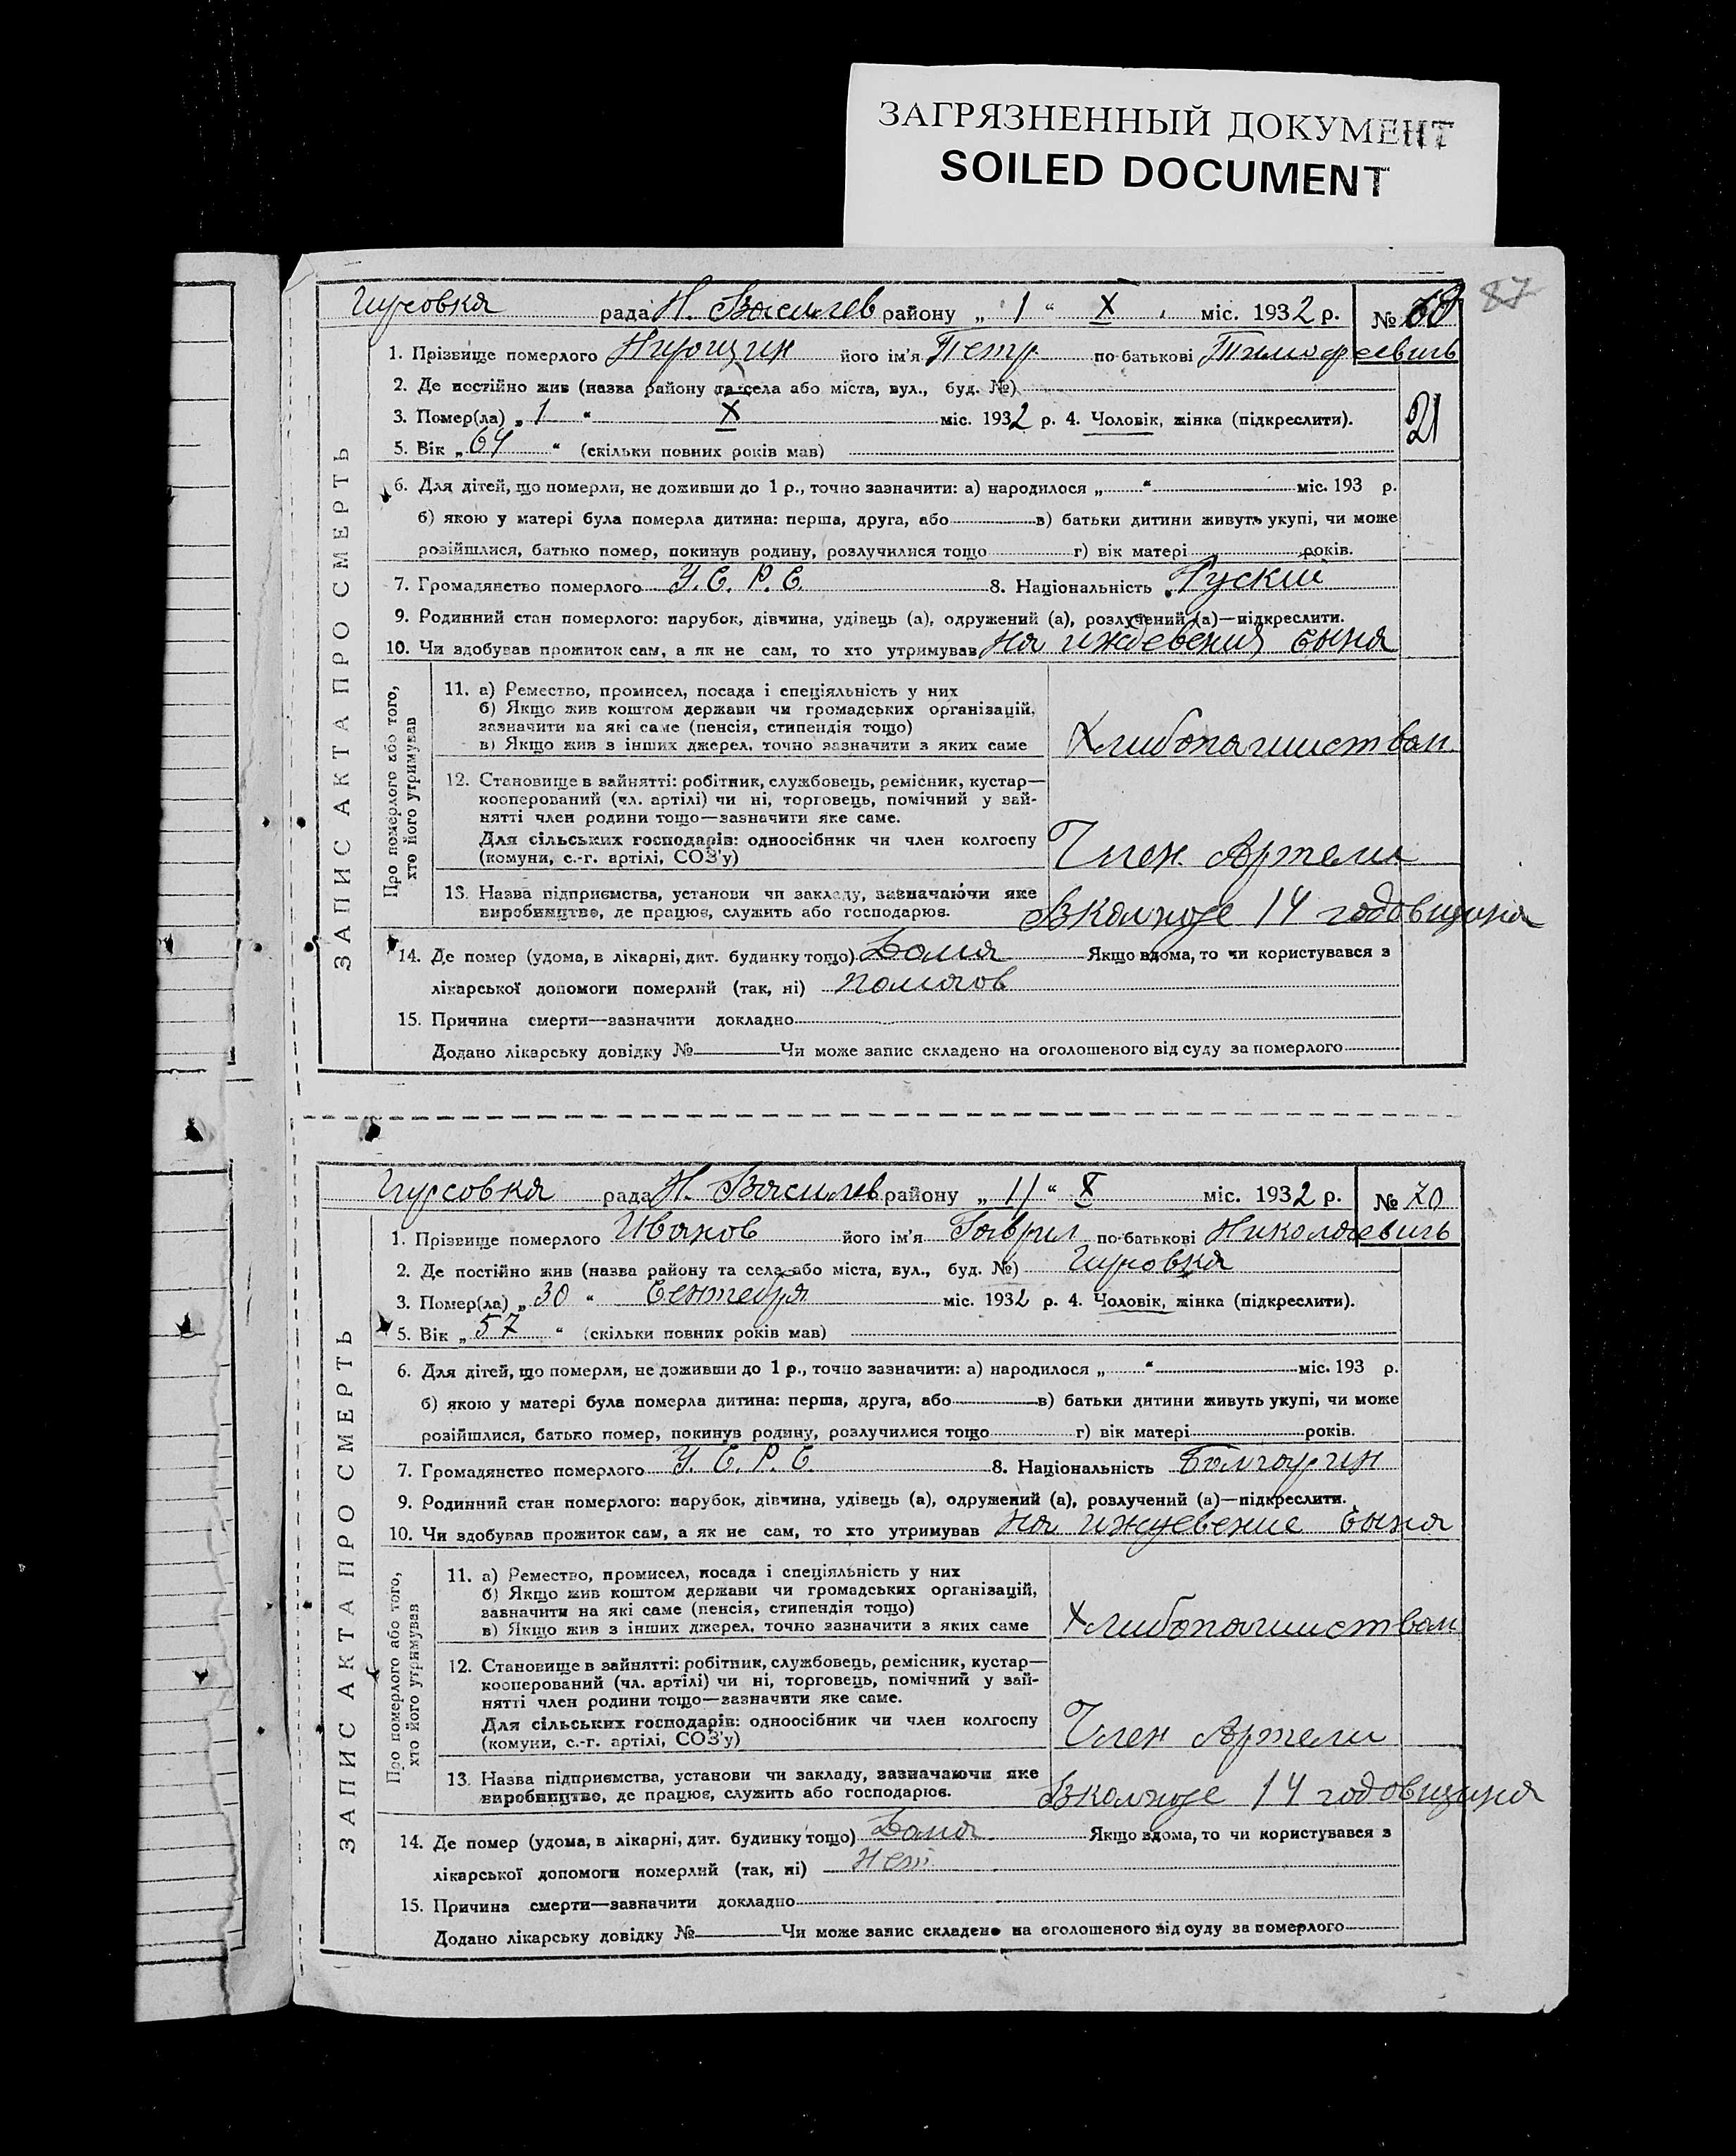 ЗАГРЯЗНЕННЫЙ ДОКУМЕНТ
SOILED DOCUMENT
87
Гирсовка рада Н. Василев району „ 1 “ X міс. 1932 р. № 69
1. Прізвище померлого його ім'я Петр по-батькові Тимофеевичь
2. Де постійно жив (назва району та села або міста, вул., буд. №)
3. Помер(ла) „ 1 “ X міс. 1932 р. 4. Чоловік, жінка (підкреслити).
21
5. Вік „ 64 “ (скільки повних років мав)
6. Для дітей, що померли, не доживши до 1 р., точно зазначити: а) народилося „ “ міс. 193 р.
б) якою у матері була померла дитина: перша, друга, або в) батьки дитини живуть укупі, чи може
розійшлися, батько помер, покинув родину, розлучилися тощо г) вік матері років.
7. Громадянство померлого У. С. Р. С. 8. Національність Руский
9. Родинний стан померлого: парубок, дівчина, удівець (а), одружений (а), розлучений (а)—підкреслити.
10. Чи здобував прожиток сам, а як не сам, то хто утримував на иждевения сына
ЗАПИС АКТА ПРО СМЕРТЬ
Про померлого або того,
хто його утримував
11. а) Ремество, промисел, посада і спеціяльність у них
б) Якщо жив коштом держави чи громадських організацій,
зазначити на які саме (пенсія, стипендія тощо)
в) Якщо жив з інших джерел, точно зазначити з яких саме Хлибопашиством
12. Становище в зайнятті: робітник, службовець, ремісник, кустар—
кооперований (чл. артілі) чи ні, торговець, помічний у зай-
нятті член родини тощо—зазначити яке саме.
Для сільських господарів: одноосібник чи член колгоспу
(комуни, с.-г. артілі, СОЗ'у) Член Артели
13. Назва підприємства, установи чи закладу, зазначаючи яке
виробництво, де працює, служить або господарює. Вколхозе 14 годовщина
14. Де помер (удома, в лікарні, дит. будинку тощо) Дома Якщо вдома, то чи користувався з
лікарської допомоги померлий (так, ні)
15. Причина смерти—зазначити докладно
Додано лікарську довідку № Чи може запис складено на оголошеного від суду за померлого
Гирсовка рада Н. Василев району „ 11 “ X міс. 1932 р. № 70
1. Прізвище померлого Иванов його ім'я Гаврил по-батькові Николаевичь
2. Де постійно жив (назва району та села або міста, вул., буд. №) Гирсовка
3. Помер(ла) „ 30 “ Сентебря міс. 1932 р. 4. Чоловік, жінка (підкреслити).
5. Вік „ 57 “ (скільки повних років мав)
6. Для дітей, що померли, не доживши до 1 р., точно зазначити: а) народилося „ “ міс. 193 р.
б) якою у матері була померла дитина: перша, друга, або в) батьки дитини живуть укупі, чи може
розійшлися, батько помер, покинув родину, розлучилися тощо г) вік матері років.
7. Громадянство померлого У. С. Р. С. 8. Національність Болгарин
9. Родинний стан померлого: парубок, дівчина, удівець (а), одружений (а), розлучений (а)—підкреслити.
10. Чи здобував прожиток сам, а як не сам, то хто утримував на иждевение сына
ЗАПИС АКТА ПРО СМЕРТЬ
Про померлого або того,
хто його утримував
11. а) Ремество, промисел, посада і спеціяльність у них
б) Якщо жив коштом держави чи громадських організацій,
зазначити на які саме (пенсія, стипендія тощо)
в) Якщо жив з інших джерел, точно зазначити з яких саме Хлибопашиством
12. Становище в зайнятті: робітник, службовець, ремісник, кустар—
кооперований (чл. артілі) чи ні, торговець, помічний у зай-
нятті член родини тощо—зазначити яке саме.
Для сільських господарів: одноосібник чи член колгоспу
(комуни, с.-г. артілі, СОЗ'у) Член Артели
13. Назва підприємства, установи чи закладу, зазначаючи яке
виробництво, де працює, служить або господарює. Вколхозе 14 годовщина
14. Де помер (удома, в лікарні, дит. будинку тощо) Дома Якщо вдома, то чи користувався з
лікарської допомоги померлий (так, ні) Нет
15. Причина смерти—зазначити докладно
Додано лікарську довідку № Чи може запис складено на оголошеного від суду за померлого